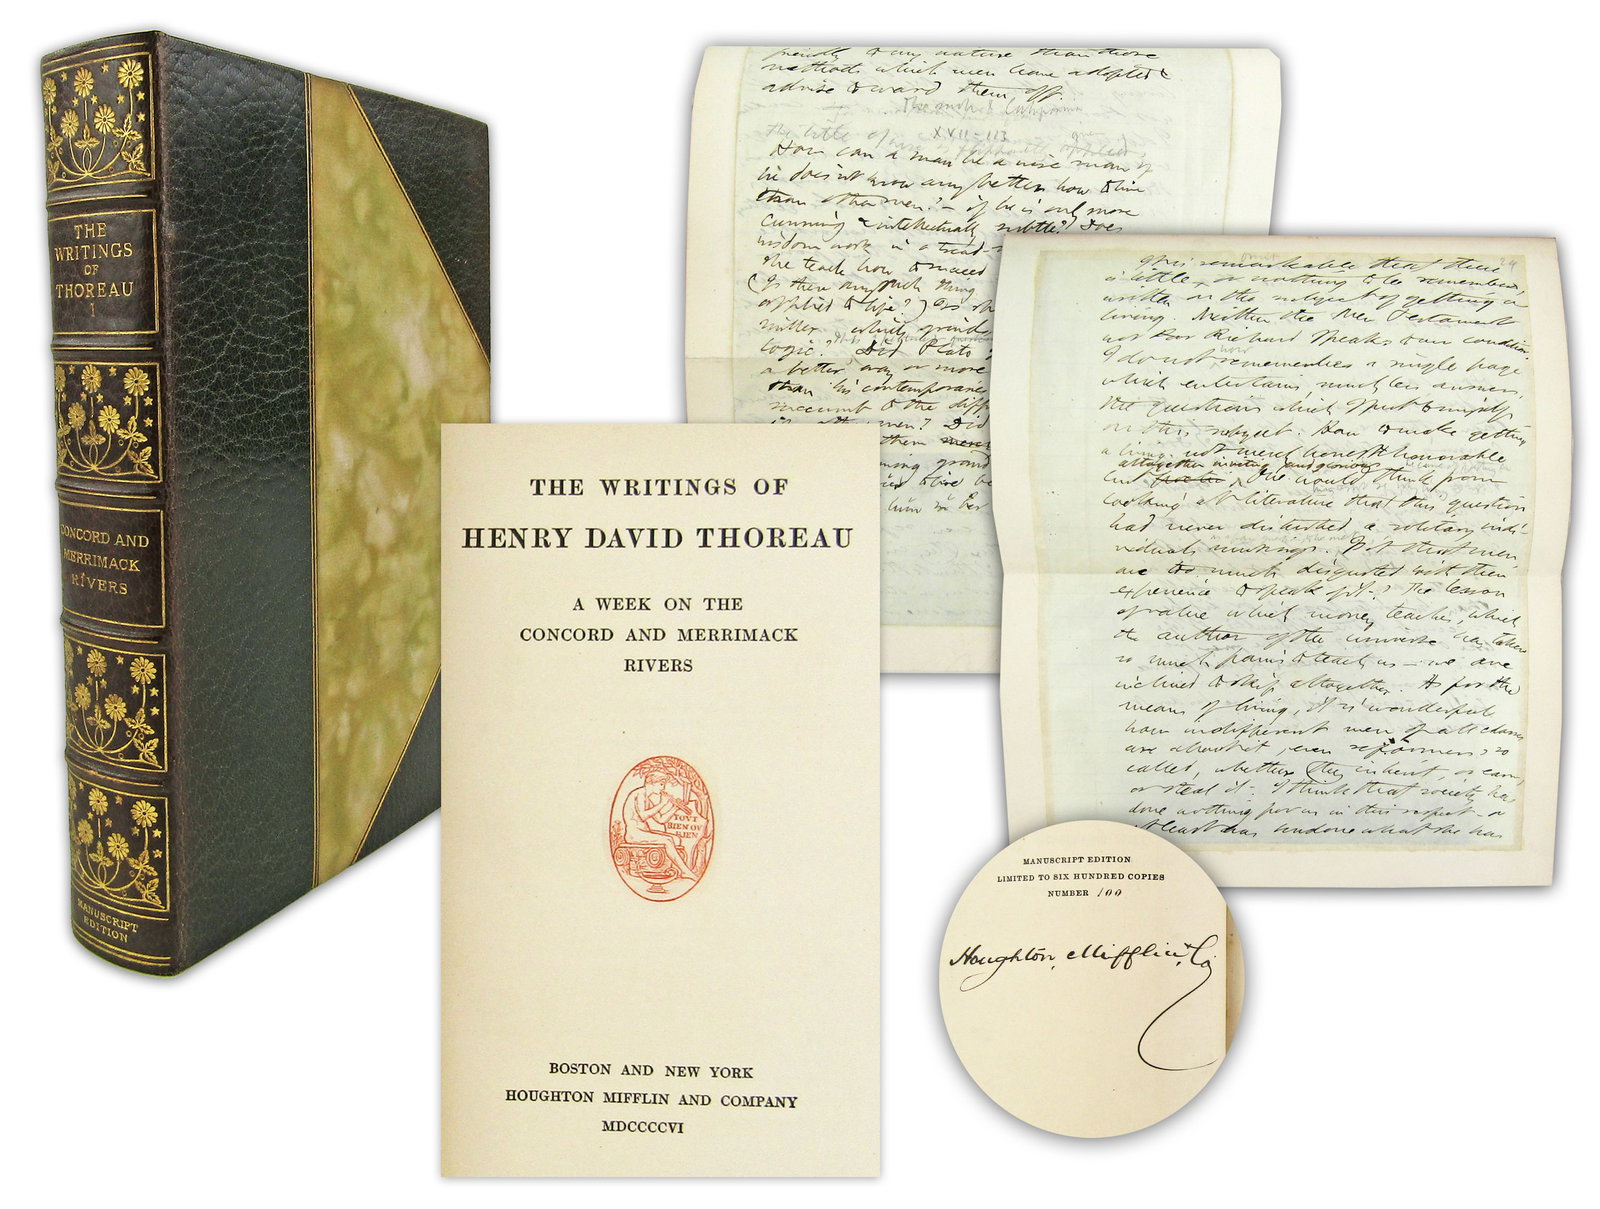 THE
WRITINGS
OF
THOREAU
I
CONCORD AND
MERRIMACK
RIVERS
MANUSCRIPT
EDITION
THE WRITINGS OF
HENRY DAVID THOREAU
A WEEK ON THE
CONCORD AND MERRIMACK
RIVERS
TOVT
BIEN OV
RIEN
BOSTON AND NEW YORK
HOUGHTON MIFFLIN AND COMPANY
MDCCCCVI
friendly to my nature than those
methods which men have adopted &
advise to ward them off.
XVII-113
The title of wise is
How can a man be a wise man if
he does not know any better how to live
than other men? - if he is only more
cunning & intellectually subtle? Does
wisdom work in a tread-
she teach how to succeed
(Is there any such thing
applied to life?) Is she
miller which grinds
logic? Did Plato
a better way or more
than his contemporaries
succumb to the diff
other men? Did
them
living grand
to live be
him in her
24
It is remarkable that there
is little or nothing to be remembered
written on the subject of getting a
living. Neither the New Testament
nor Poor Richard speaks to our condition.
I do not now remember a single page
which entertains, much less answers,
the questions which I put to myself
on this subject. How to make getting
a living not merely honest & honorable
altogether inviting and glorious
but One would think from
looking at literature that this question
had never disturbed a solitary indi-
viduals musings. Is it that men
are too much disgusted with their
experience to speak of it? The lesson
of value which money teaches, which
the author of the universe has taken
so much pains to teach us - we are
inclined to skip altogether. As for the
means of living, it is wonderful
how indifferent men of all classes
are about it, even reformers, so
called, whether they inherit, or earn,
or steal it. I think that society has
done nothing for us in this respect - or
at least has undone what she has
MANUSCRIPT EDITION
LIMITED TO SIX HUNDRED COPIES
NUMBER 100
Houghton, Mifflin & Co.